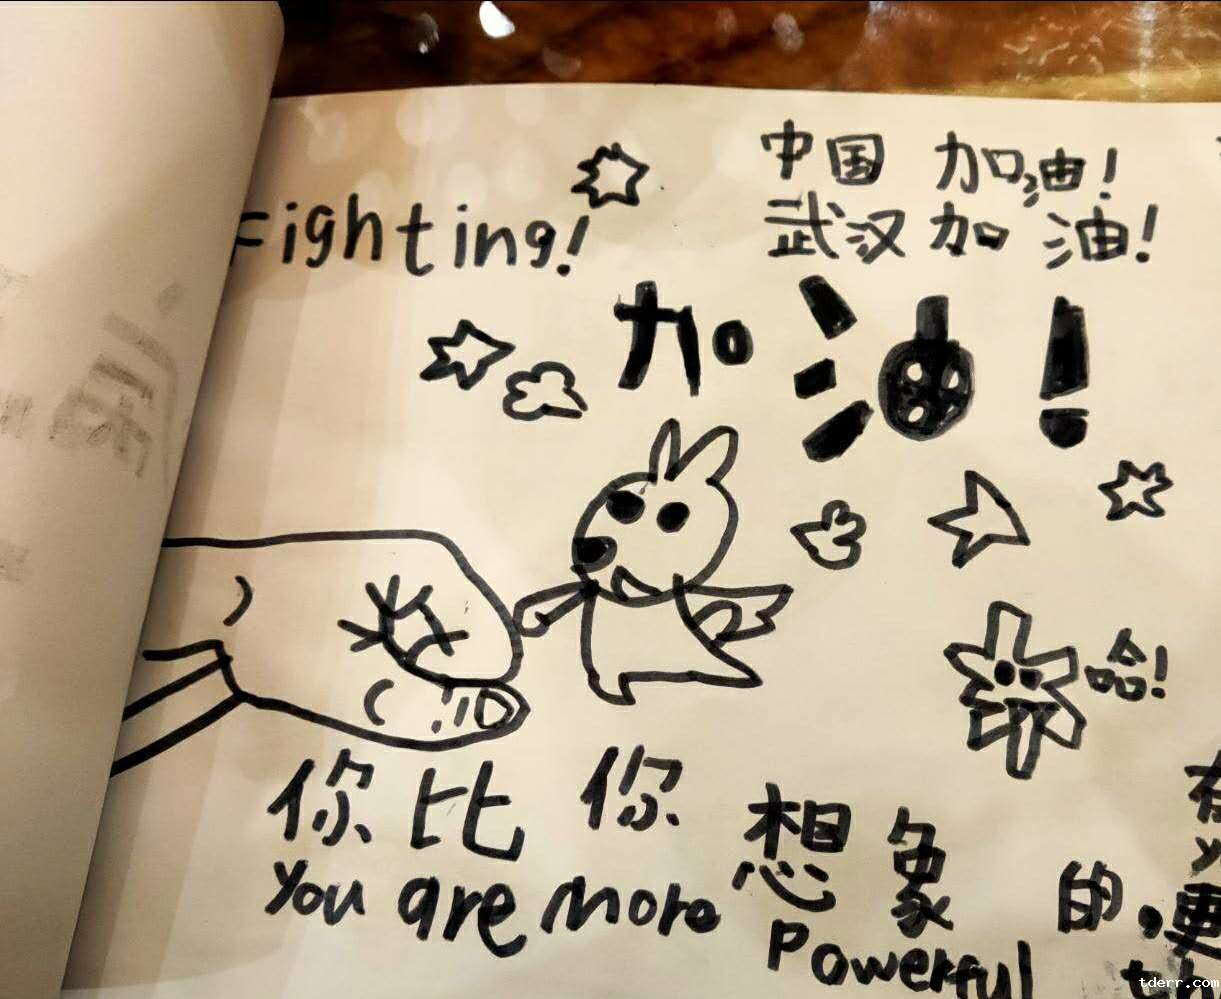 中国 加油!
Fighting!
武汉加油!
加油!
哈!
你比你想象的,更
You are more Powerful th
tderr.com